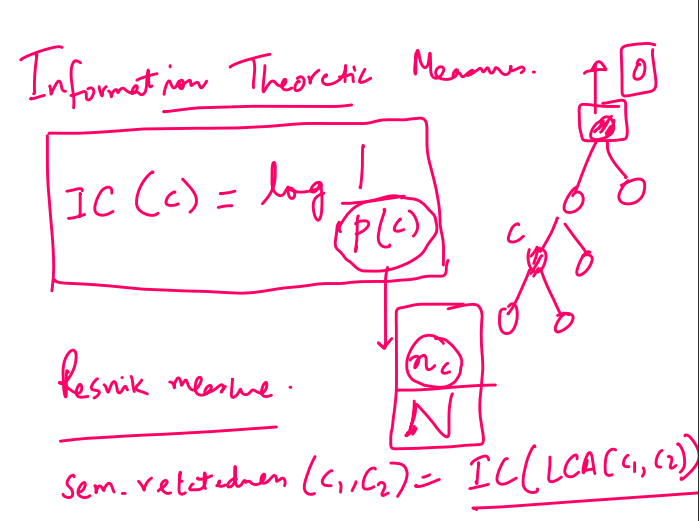 Information Theoretic Measures.
0
IC (c) = log 1/p(c)
c
n_c/N
Resnik measure.
Sem. relatedness (c₁, c₂) = IC(LCA(c₁, c₂))